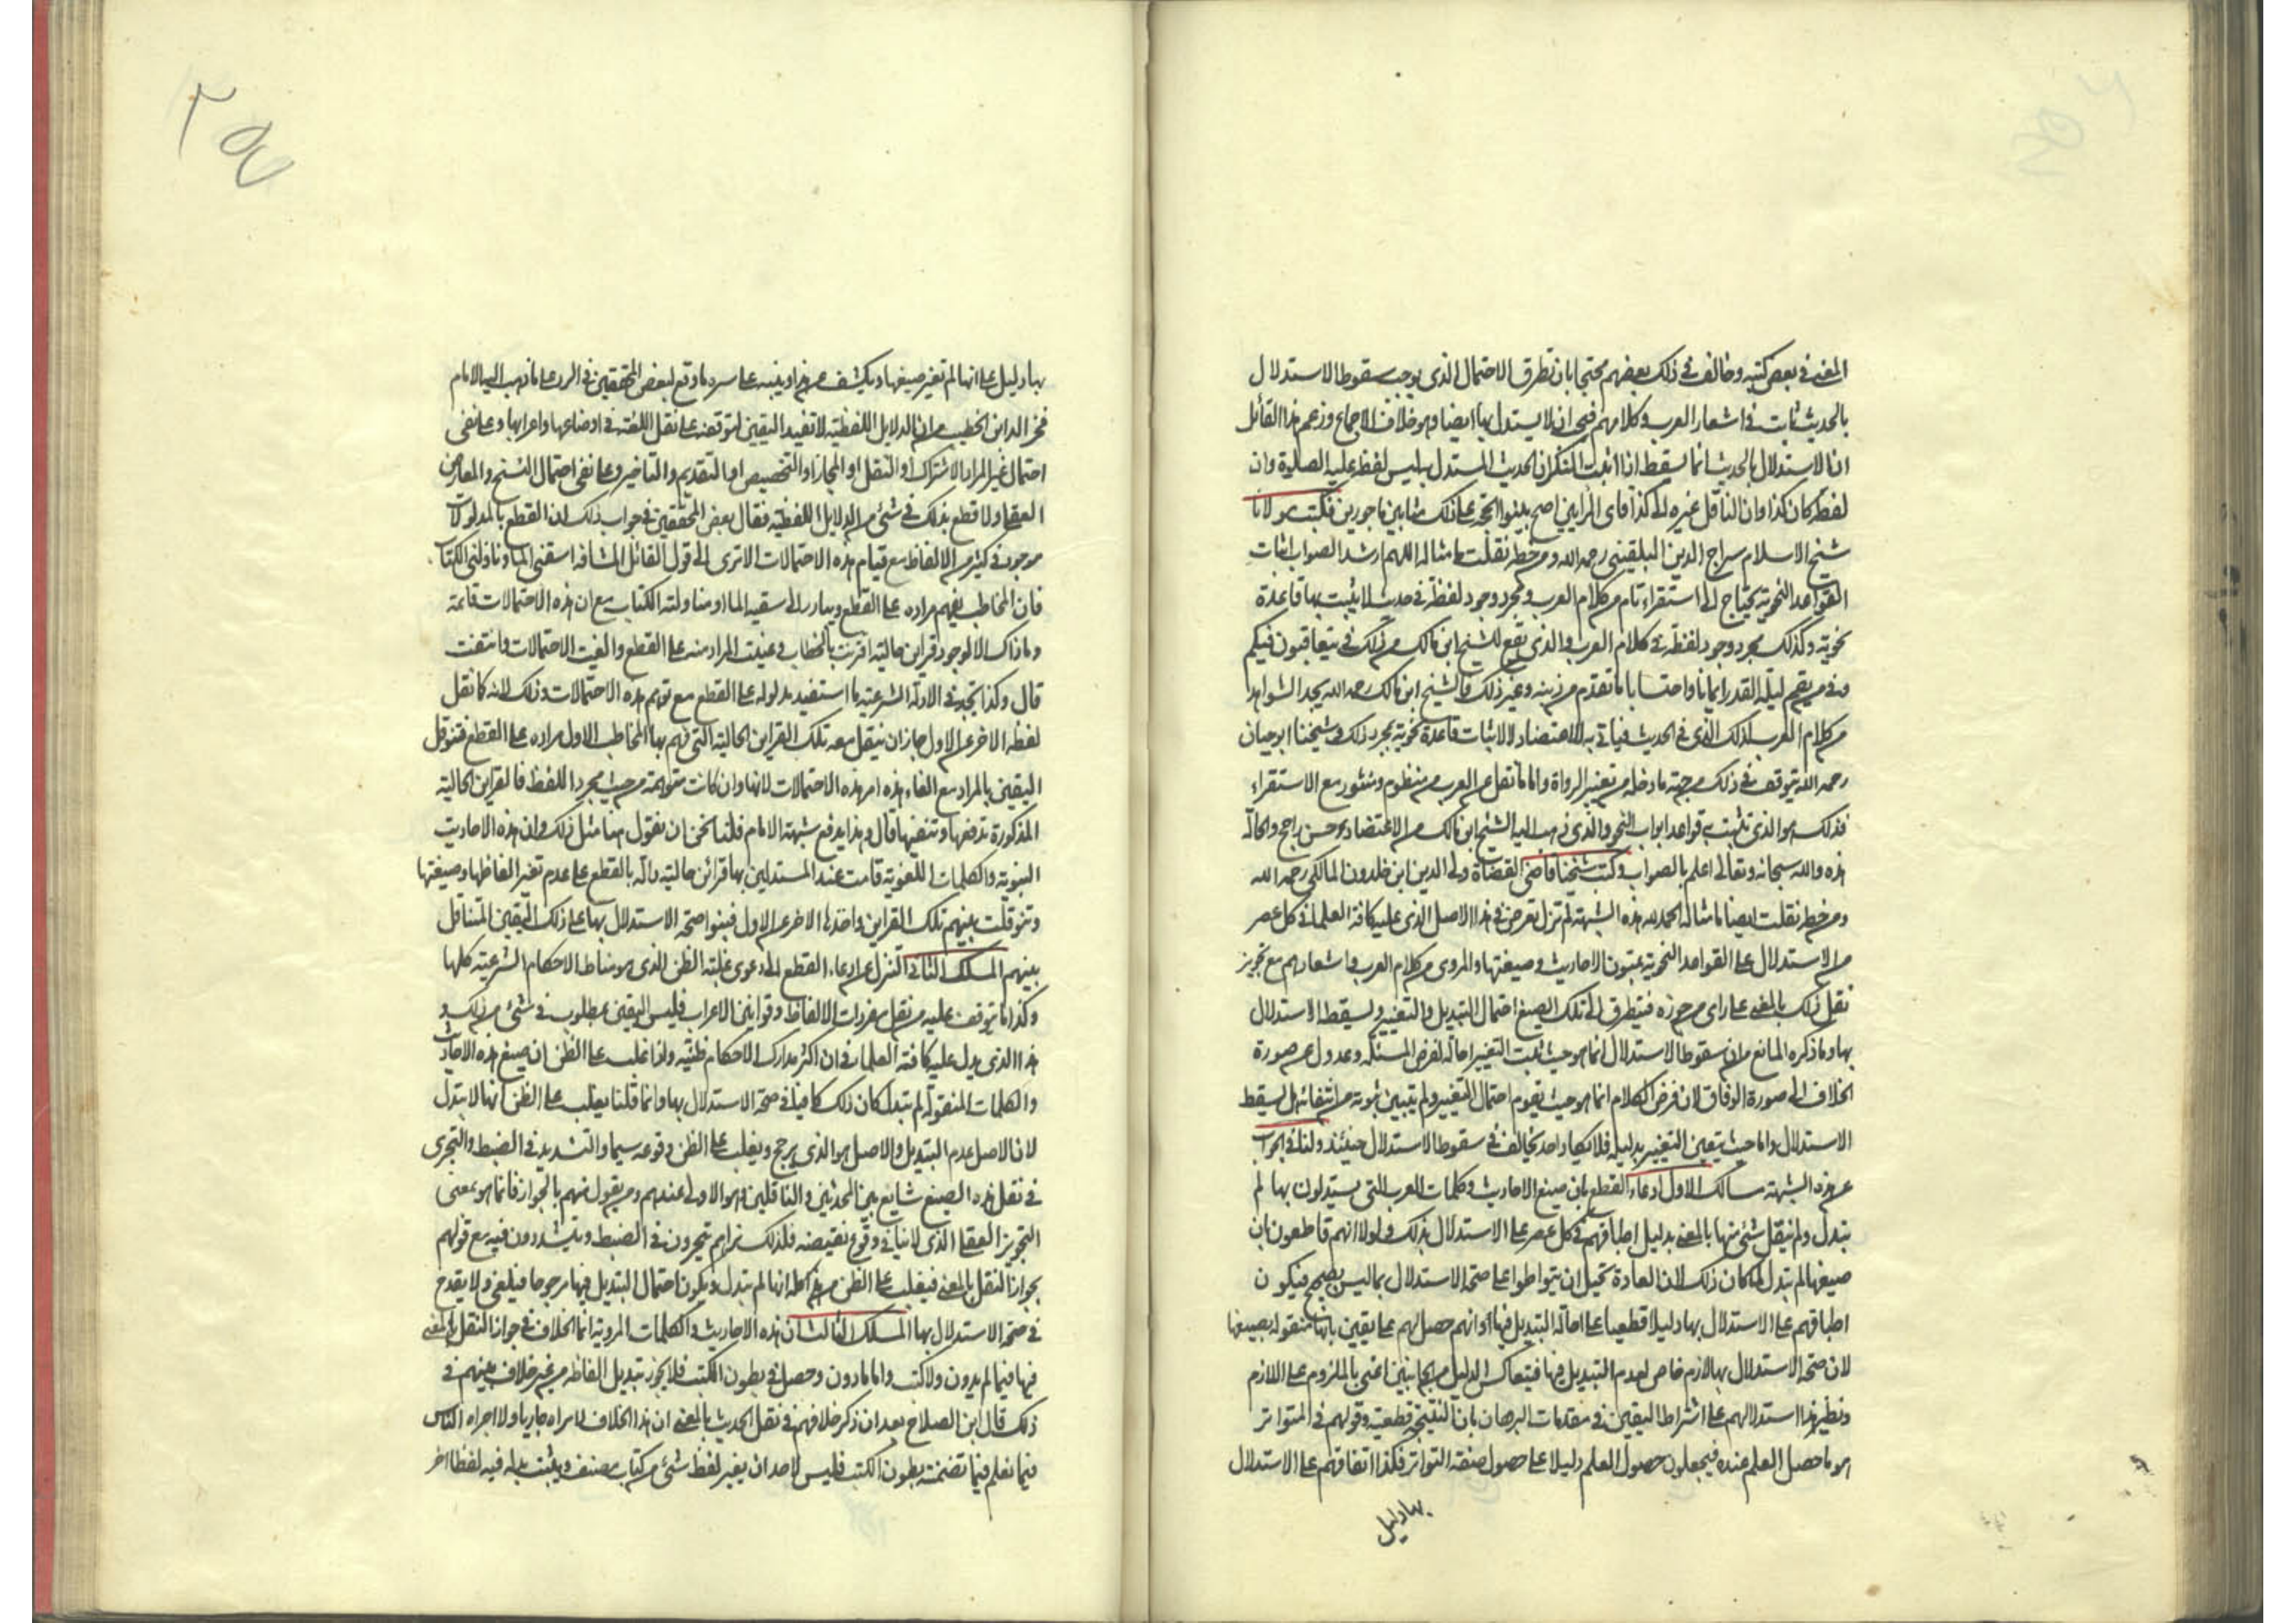 المغنى في بعض كتبه وخالف في ذلك بعضهم محتجا بان تطرق الاحتمال الذي يوجب سقوط الاستدلال
بالحديث ثابت في اشعار العرب وكلامهم فيجب ان لا يستدل بها ايضا وهو خلاف الاجماع وزعم هذا القائل
ان الاستدلال بالحديث انما يسقط اذا اثبت المنكر ان الحديث المستدل به ليس لفظه عليه الصلوة وان
لفظه كان كذا وان الناقل غيره الى كذا فاى الرايين اصح بينوا الحجة على ذلك مثابين ماجورين فكتب مولانا
شيخ الاسلام سراج الدين البلقينى رحمه الله ومن خطه نقلت ما مثاله اللهم ارشد الصواب اثبات
القواعد النحوية يحتاج الى استقراء تام من كلام العرب ومجرد وجود لفظة في حديث لا يثبت بها قاعدة
نحوية وكذلك مجرد وجود لفظة في كلام العرب والذي يقع للشيخ ابن مالك من ذلك في يتعاقبون فيكم
وفى من يقم ليلة القدر ايمانا واحتسابا ما تقدم من ذنبه وغير ذلك فالشيخ ابن مالك رحمه الله يجد الشواهد
من كلام العرب لذلك الذى في الحديث فياتي به للاعتضاد لا لاثبات قاعدة نحوية بمجرد ذلك وشيخنا ابو حيان
رحمه الله يتوقف في ذلك من جهة ما دخله من تغيير الرواة واما ما نقل عن العرب من منظوم ومنثور مع الاستقراء
فذلك هو الذى تثبت به قواعد ابواب النحو والذى ذهب اليه الشيخ ابن مالك من الاعتضاد به حسن راجح والحالة
هذه والله سبحانه وتعالى اعلم بالصواب وكتب شيخنا قاضى القضاة ولى الدين ابن خلدون المالكى رحمه الله
ومن خطه نقلت ايضا ما مثاله الحمد لله هذه الشبهة لم تزل تعرض في هذا الاصل الذى عليه كافة العلماء في كل عصر
من الاستدلال على القواعد النحوية بمتون الاحاديث وصيغتها والمروى من كلام العرب واشعارهم مع تجويز
نقل ذلك بالمعنى على راى من جوزه فيتطرق الى تلك الصيغ احتمال التبديل والتغيير ويسقط الاستدلال
بها وما ذكره المانع من ان سقوط الاستدلال انما هو حيث ثبت التغيير احالة لفرض المسئلة وعدول عن صورة
الخلاف الى صورة الوفاق لان فرض الكلام انما هو حيث يقوم احتمال التغيير ولم يتبين ثبوته من انتفائه هل يسقط
الاستدلال واما حيث يتعين التغيير بدليله فلا يكاد احد يخالف في سقوط الاستدلال حينئذ ولنا في الجواب
عن هذه الشبهة مسالك الاول ادعاء القطع بان صيغ الاحاديث وكلمات العرب التي يستدلون بها لم
تبدل ولم ينقل شئ منها بالمعنى بدليل اطباقهم في كل عصر على الاستدلال بذلك ولولا انهم قاطعون بان
صيغها لم تبدل لما كان ذلك لان العادة تحيل ان يتواطوا على صحة الاستدلال بما ليس بصحيح فيكون
اطباقهم على الاستدلال بها دليلا قطعيا على احالة التبديل فيها او انهم حصل لهم على يقين بانها منقولة بصيغها
لان صحة الاستدلال بها لازم خاص لعدم التبديل فيها فيتعاكس الدليل من الجانبين اعنى بالملزوم على اللازم
ونظير هذا استدلالهم على اشتراط اليقين في مقدمات البرهان بان النتيجة قطعية وقولهم في المتواتر
هو ما حصل العلم عنده فيجعلون حصول العلم دليلا على حصول صفة التواتر فكذا اتفاقهم على الاستدلال
بها دليل
٢٥٤
بها دليل على انها لم تغير صيغها ويكشف عن هذا وينبه على سره ما وقع لبعض المحققين في الرد على ما ذهب اليه الامام
فخر الدين الخطيب من ان الدلايل اللفظية لا تفيد اليقين لتوقفه على نقل اللغة في اوضاعها واعرابها وعلى نفى
احتمال غير المراد بالاشتراك او النقل او المجاز او التخصيص او التقديم والتاخير وعلى نفى احتمال النسخ والمعارض
العقلى ولا قطع بذلك في شئ من الدلايل اللفظية فقال بعض المحققين في جواب ذلك ان القطع بالمدلولات
موجود في كثير من الالفاظ مع قيام هذه الاحتمالات الا ترى الى قول القائل المشافه اسقنى الما وناولنى الكتاب
فان المخاطب يفهم مراده على القطع ويبادر الى سقيه الما او مناولته الكتاب مع ان هذه الاحتمالات قائمة
وما ذاك الا لوجود قراين حالية اقترنت بالخطاب وعينت المراد منه على القطع والغيت الاحتمالات وانتفت
قال وكذا تجد في الادلة الشرعية ما استفيد مدلوله على القطع مع توهم هذه الاحتمالات وذلك لانه كما نقل
لفظه الاخر عن الاول جاز ان ينقل معه تلك القراين الحالية التى فهم بها المخاطب الاول مراده على القطع فتنوقل
اليقين بالمراد مع الغاء هذه الاحتمالات لانها وان كانت متوهمة من حيث مجرد اللفظ فالقراين الحالية
المذكورة تدفعها وتنفيها قال وبهذا يدفع شبهة الامام قلنا نحن ان نقول هنا مثل ذلك وان هذه الاحاديث
النبوية والكلمات اللغوية قامت عند المستدلين بها قرائن حالية دالة بالقطع على عدم تغير الفاظها وصيغتها
وتنوقلت بينهم تلك القراين واخذها الاخر عن الاول فبنوا صحة الاستدلال بها على ذلك اليقين المتناقل
بينهم المسلك الثانى التنزل عن ادعاء القطع الى دعوى غلبة الظن الذى هو مناط الاحكام الشرعية كلها
وكذا ما يتوقف عليه من نقل مفردات الالفاظ وقوانين الاعراب فليس اليقين بمطلوب في شئ من ذلك و
هذا الذى يدل عليه كافة العلماء في ان اكثر مدارك الاحكام ظنية واذا غلب على الظن ان صيغ هذه الاحاديث
والكلمات المنقولة لم تبدل كان ذلك كافيا في صحة الاستدلال بها وانما قلنا يغلب على الظن انها لا تبدل
لان الاصل عدم التبديل والاصل هو الذى يرجح ويغلب على الظن وقوعه سيما والتشديد في الضبط والتحرى
في نقل هذه الصيغ شايع بين المحدثين والناقلين وهو الاولى عندهم ومن يقول منهم بالجواز فانما هو بمعنى
التجويز العقلى الذى لا ينافى وقوع نقيضه فلذلك تراهم يتحرون في الضبط ويتشددون فيه مع قولهم
بجواز النقل بالمعنى فيغلب على الظن من هذا كله انها لم تبدل ويكون احتمال التبديل فيها مرجوحا فيلغى ولا يقدح
في صحة الاستدلال بها المسلك الثالث ان هذه الاحاديث والكلمات المروية انما الخلاف في جواز النقل بالمعنى
فيها فيما لم يدون ولا كتب واما ما دون وحصل في بطون الكتب فلا يجوز تبديل الفاظه من غير خلاف بينهم في
ذلك قال ابن الصلاح بعد ان ذكر خلافهم في نقل الحديث بالمعنى ان هذا الخلاف لا نراه جاريا ولا اجراه الناس
فيما نعلم فيما تضمنته بطون الكتب فليس لاحد ان يغير لفظ شئ من كتاب مصنف ويثبت بدله فيه لفظا اخر